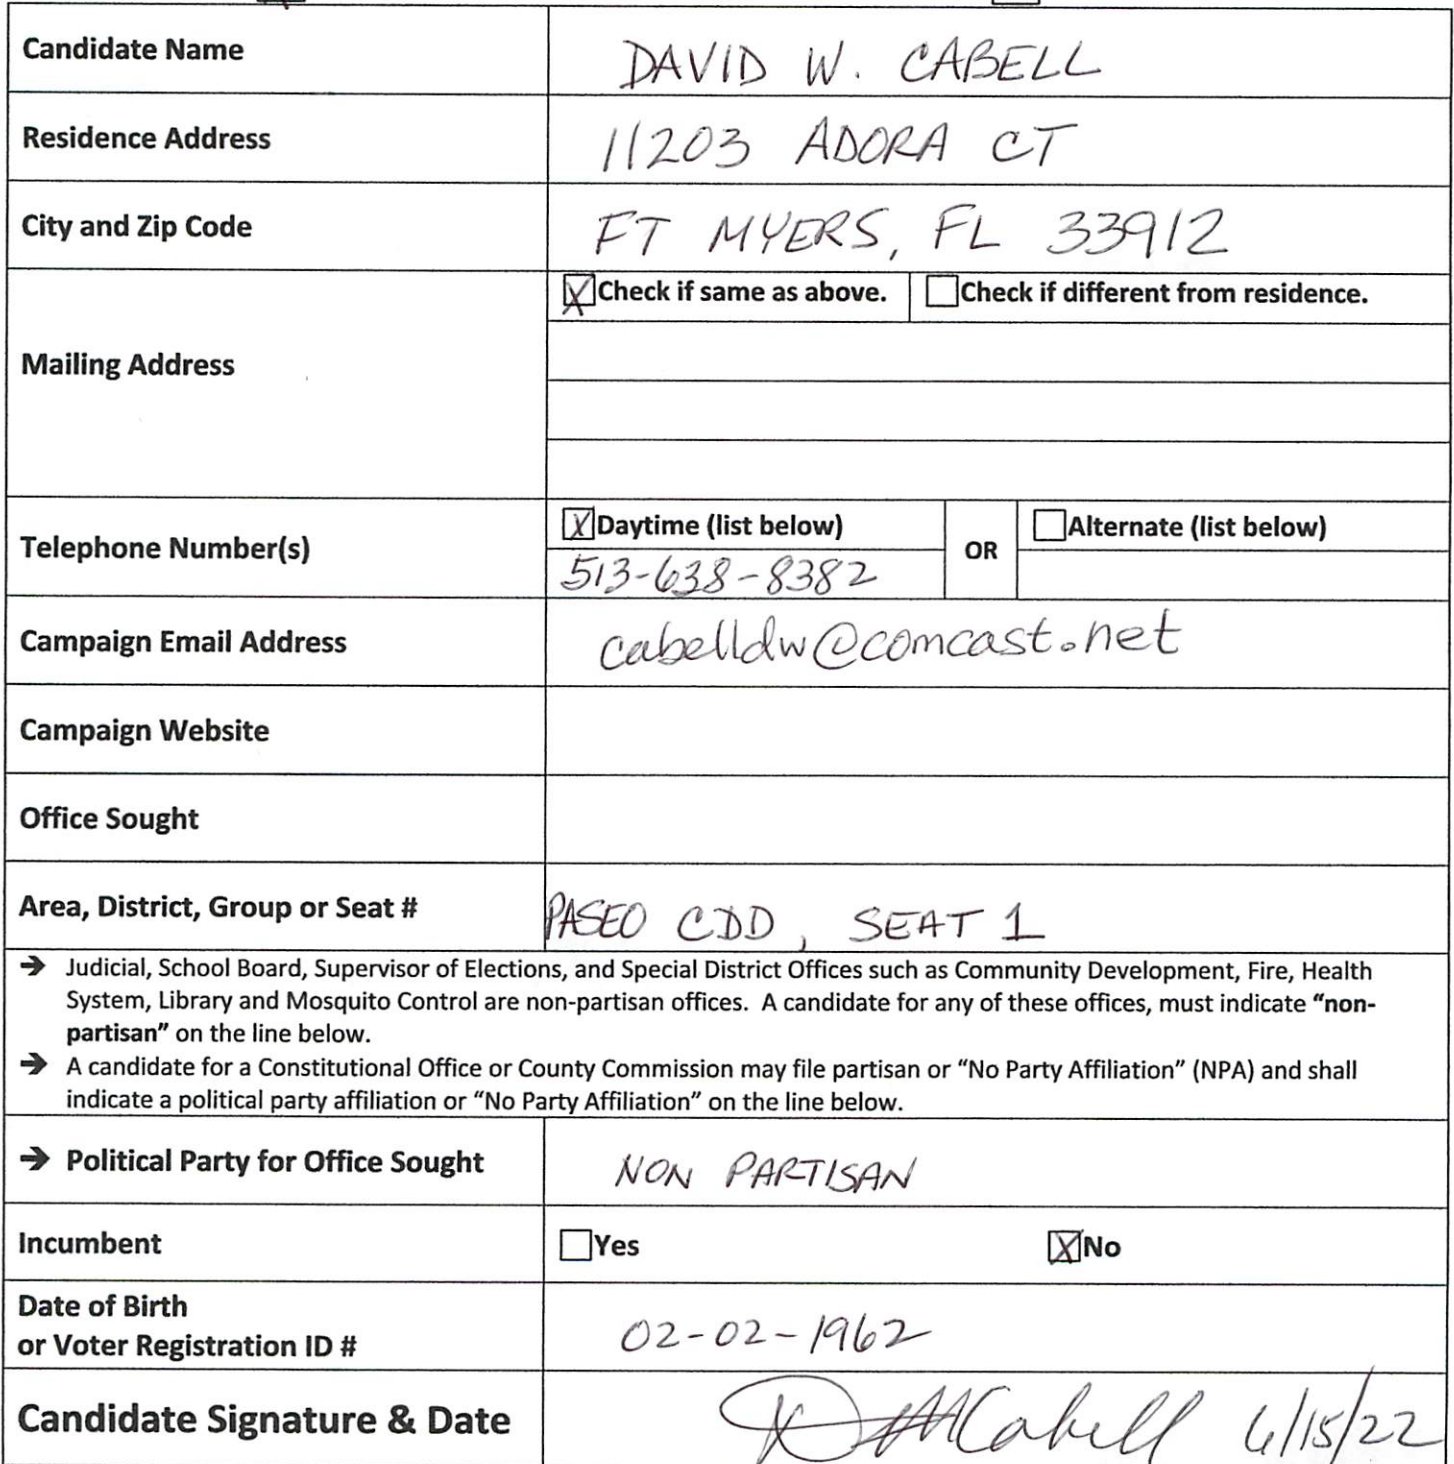 Candidate Name DAVID W. CABELL
Residence Address 11203 ADORA CT
City and Zip Code FT MYERS, FL 33912
Mailing Address
X Check if same as above. Check if different from residence.
Telephone Number(s)
X Daytime (list below) OR Alternate (list below)
513-638-8382
Campaign Email Address cabelldw@comcast.net
Campaign Website
Office Sought
Area, District, Group or Seat # PASEO CDD, SEAT 1
→ Judicial, School Board, Supervisor of Elections, and Special District Offices such as Community Development, Fire, Health
System, Library and Mosquito Control are non-partisan offices. A candidate for any of these offices, must indicate “non-
partisan” on the line below.
→ A candidate for a Constitutional Office or County Commission may file partisan or “No Party Affiliation” (NPA) and shall
indicate a political party affiliation or “No Party Affiliation” on the line below.
→ Political Party for Office Sought NON PARTISAN
Incumbent Yes X No
Date of Birth
or Voter Registration ID # 02-02-1962
Candidate Signature & Date D W Cabell 6/15/22